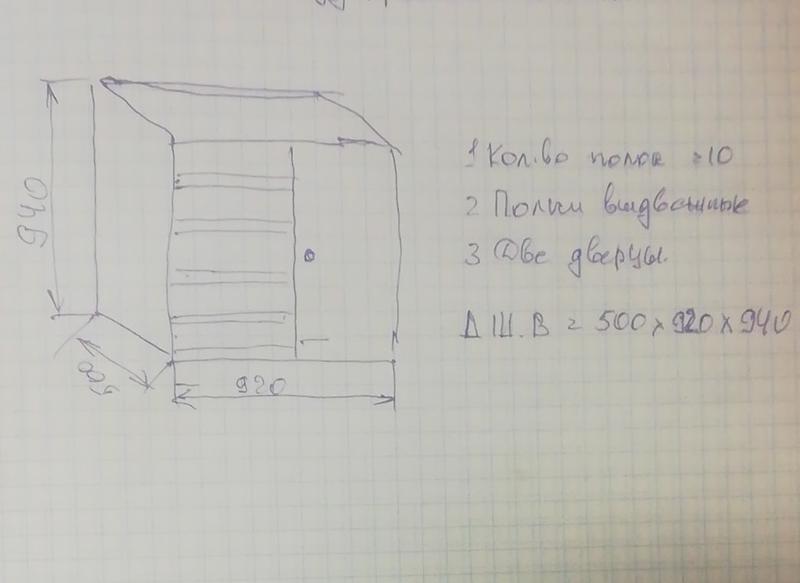 1 Кол.во полок = 10
2 Полки выдвежные
3 Две дверцы.
Д Ш. В = 500 х 920 х 940
940
500
920